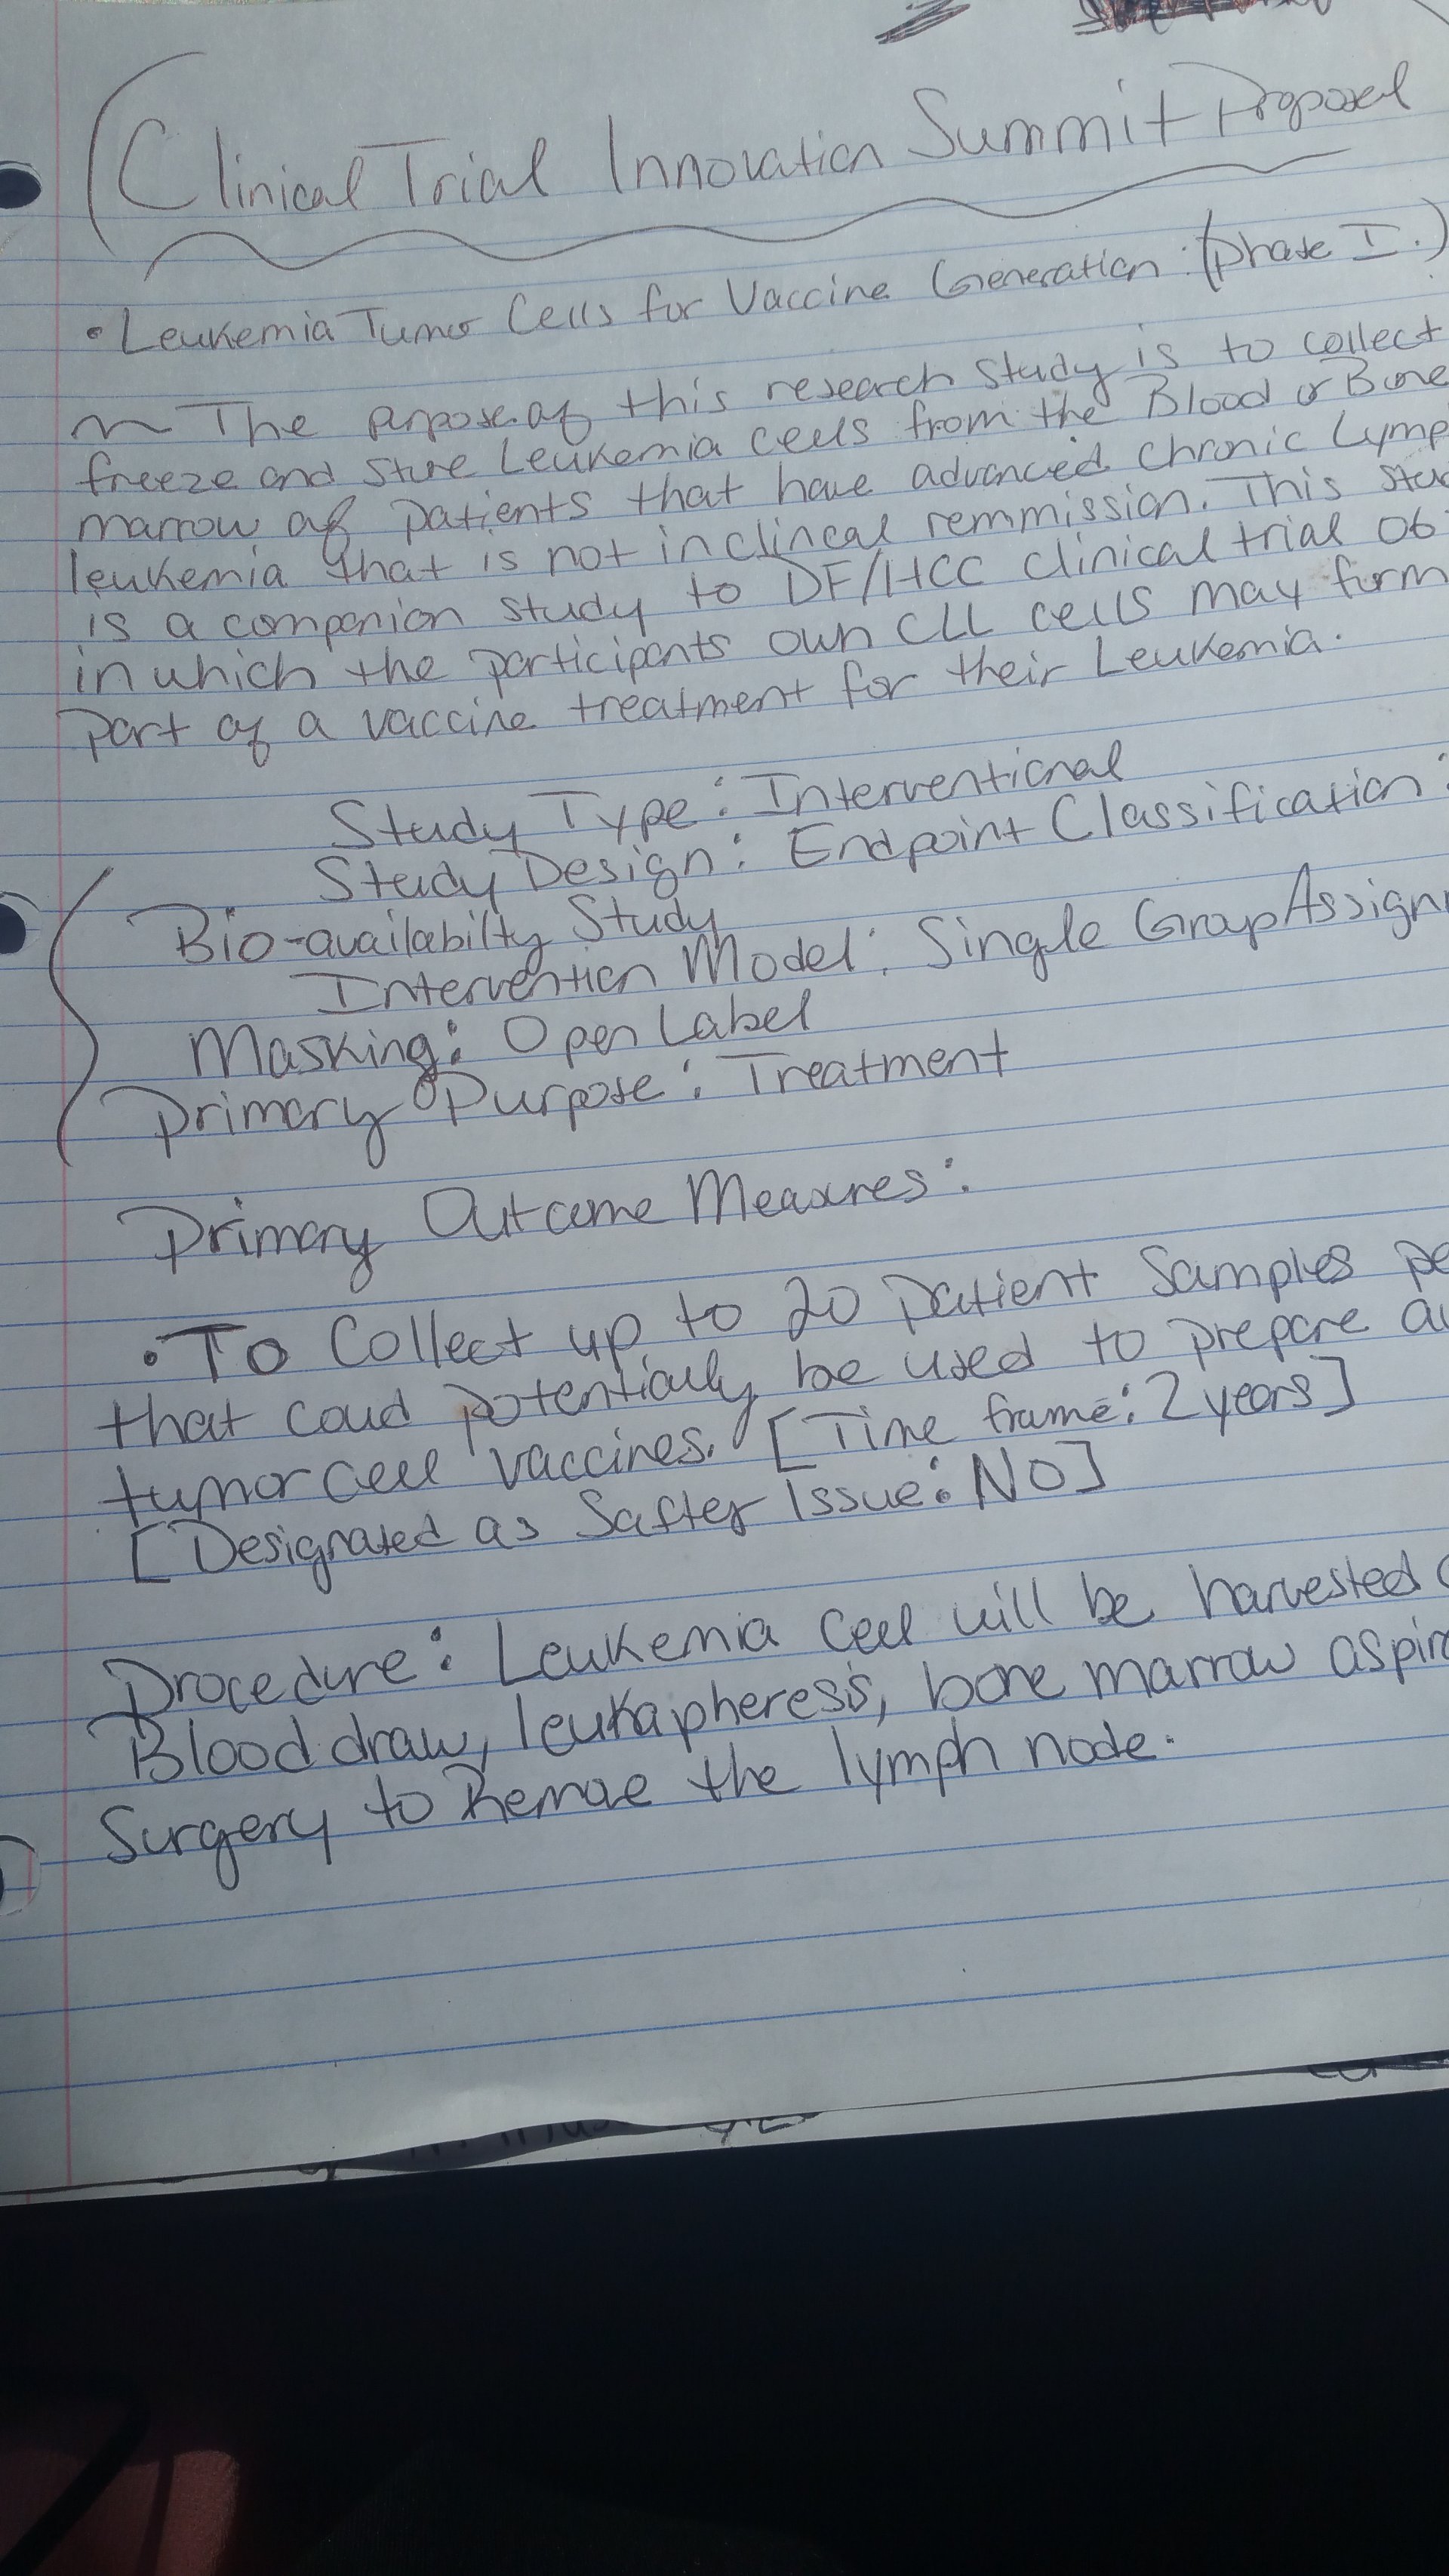 Clinical Trial Innovation Summit Proposal
• Leukemia Tumor Cells for Vaccine Generation: (Phase I.)
The purpose of this research study is to collect
freeze and store Leukemia cells from the Blood or Bone
marrow of patients that have advanced chronic Lymp
leukemia that is not in clincal remmission. This stud
is a companion study to DF/HCC clinical trial 06-
in which the participants own CLL cells may form
part of a vaccine treatment for their Leukemia.
Study Type: Interventional
Study Design: Endpoint Classification:
Bio-availabilty Study
Intervention Model: Single Group Assign
Masking: Open Label
Primary Purpose: Treatment
Primary Outcome Measures:
• To Collect up to 20 patient Samples pe
that coud potentially be used to prepare au
tumor cell vaccines. [Time frame: 2 years]
[Designated as Safter Issue: NO]
Procedure: Leukemia Cell will be harvested
Blood draw, leukapheresis, bone marrow aspira
Surgery to Remove the lymph node.